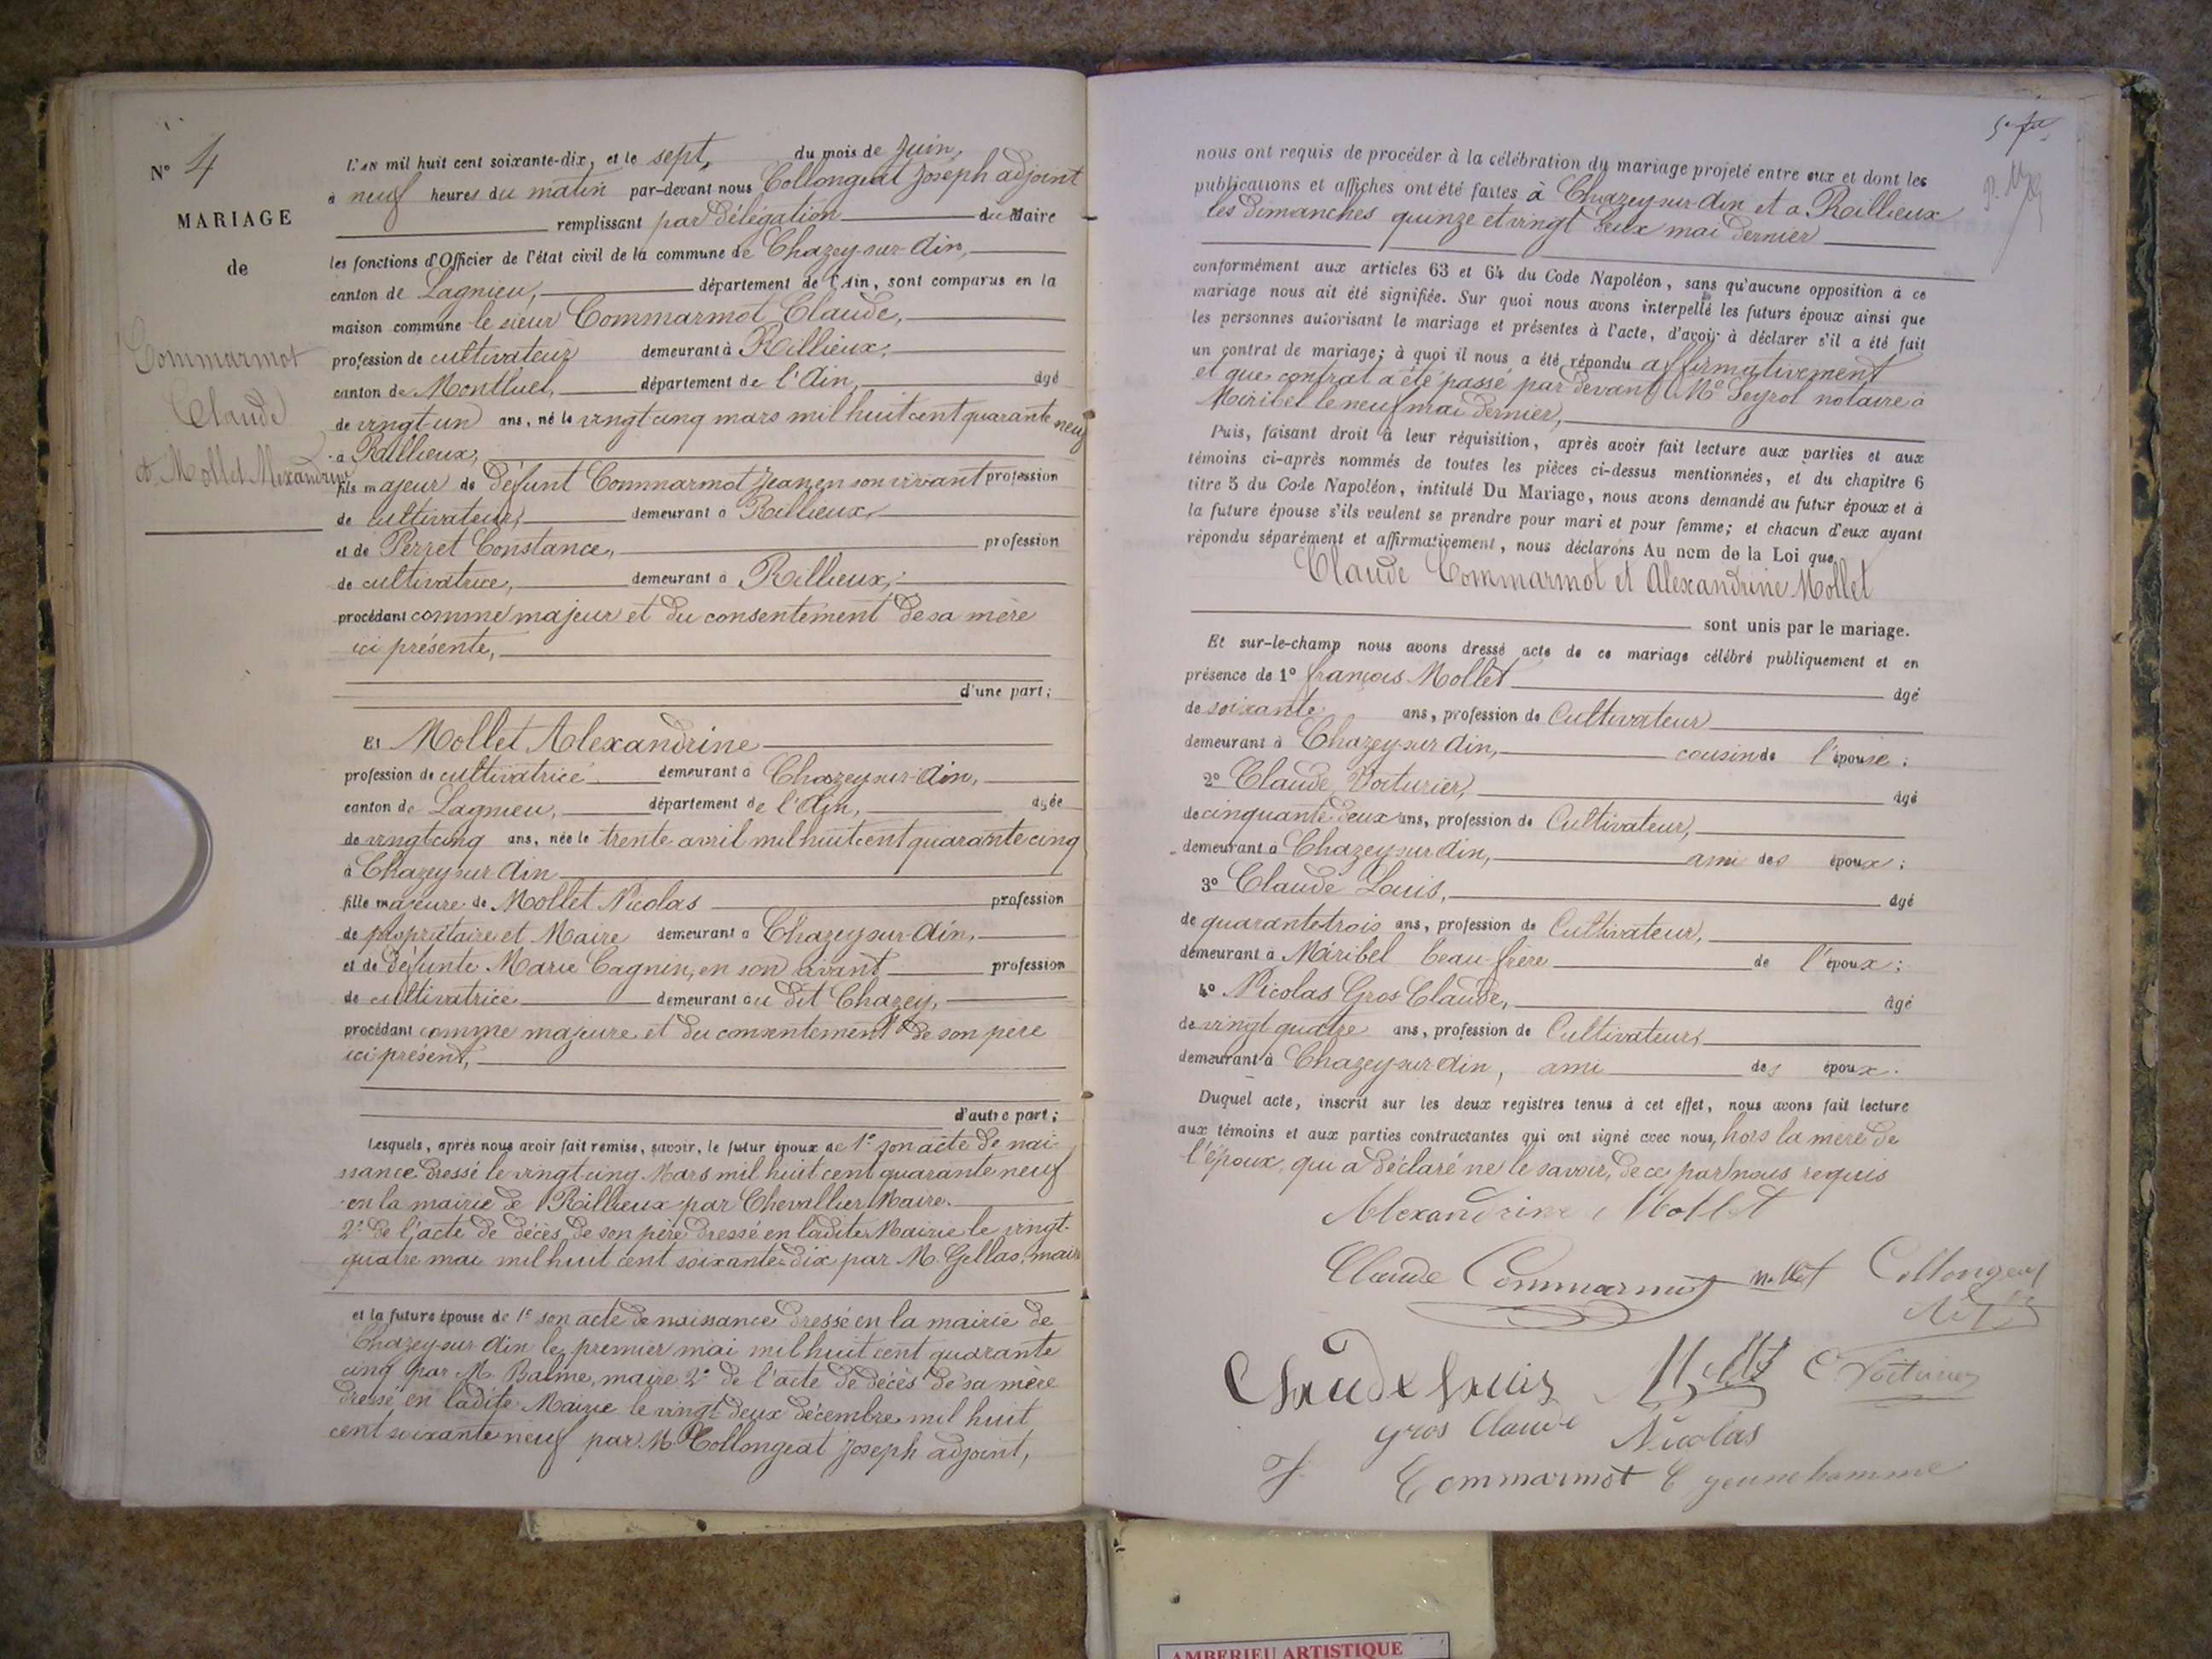 N° 4
MARIAGE
de
Commarmot
Claude
et Mollet Alexandrine
L'an mil huit cent soixante-dix, et le sept, du mois de Juin,
à neuf heures du matin par-devant nous Collongeat Joseph adjoint
remplissant par délégation du Maire
les fonctions d'Officier de l'état civil de la commune de Chazey-sur-Ain,
canton de Lagnieu, département de l'Ain, sont comparus en la
maison commune le sieur Commarmot Claude,
profession de cultivateur demeurant à Rillieux,
canton de Montluel, département de l'Ain, âgé
de vingt un ans, né le vingt cinq mars mil huit cent quarante neuf
à Rillieux,
fils majeur de défunt Commarmot Jean en son vivant profession
de cultivateur, demeurant à Rillieux,
et de Perret Constance, profession
de cultivatrice, demeurant à Rillieux,
procédant comme majeur et du consentement de sa mère
ici présente,
d'une part;
Et Mollet Alexandrine
profession de cultivatrice demeurant à Chazey-sur-Ain,
canton de Lagnieu, département de l'Ain, âgée
de vingt cinq ans, née le trente avril mil huit cent quarante cinq
à Chazey sur Ain
fille majeure de Mollet Nicolas profession
de propriétaire et Maire demeurant à Chazey sur Ain,
et de défunte Marie Cagnin, en son vivant profession
de cultivatrice demeurant au dit Chazey,
procédant comme majeure et du consentement de son père
ici présent,
d'autre part;
Lesquels, après nous avoir fait remise, savoir, le futur époux de 1° son acte de nai-
ssance dressé le vingt-cinq Mars mil huit cent quarante neuf
en la mairie de Rillieux par Chevallier Maire.
2° de l'acte de décès de son père dressé en ladite Mairie le vingt-
quatre mai mil huit cent soixante-dix par M. Gellas, maire
et la future épouse de 1° son acte de naissance dressé en la mairie de
Chazey-sur-Ain le premier mai mil huit cent quarante
cinq par M. Balme, maire 2° de l'acte de décès de sa mère
dressé en ladite Mairie le vingt-deux décembre mil huit
cent soixante neuf par M. Collongeat Joseph adjoint,
nous ont requis de procéder à la célébration du mariage projeté entre eux et dont les
publications et affiches ont été faites à Chazey-sur-Ain et à Rillieux
les dimanches quinze et vingt deux mai dernier
conformément aux articles 63 et 64 du Code Napoléon, sans qu'aucune opposition à ce
mariage nous ait été signifiée. Sur quoi nous avons interpellé les futurs époux ainsi que
les personnes autorisant le mariage et présentes à l'acte, d'avoir à déclarer s'il a été fait
un contrat de mariage; à quoi il nous a été répondu affirmativement
et que contrat a été passé par devant Me Peyrot notaire à
Miribel le neuf mai dernier,
Puis, faisant droit à leur réquisition, après avoir fait lecture aux parties et aux
témoins ci-après nommés de toutes les pièces ci-dessus mentionnées, et du chapitre 6
titre 5 du Code Napoléon, intitulé Du Mariage, nous avons demandé au futur époux et à
la future épouse s'ils veulent se prendre pour mari et pour femme; et chacun d'eux ayant
répondu séparément et affirmativement, nous déclarons Au nom de la Loi que
Claude Commarmot et Alexandrine Mollet
sont unis par le mariage.
Et sur-le-champ nous avons dressé acte de ce mariage célébré publiquement et en
présence de 1° françois Mollet âgé
de soixante ans, profession de Cultivateur
demeurant à Chazey-sur Ain, cousin de l'épouse;
2° Claude Voiturier, âgé
de cinquante deux ans, profession de Cultivateur,
demeurant à Chazey sur Ain, ami des époux;
3° Claude Louis, âgé
de quarante-trois ans, profession de Cultivateur,
demeurant à Miribel beau-frère de l'époux;
4° Nicolas Gros Claude, âgé
de vingt quatre ans, profession de Cultivateur,
demeurant à Chazey-sur-Ain, ami des époux.
Duquel acte, inscrit sur les deux registres tenus à cet effet, nous avons fait lecture
aux témoins et aux parties contractantes qui ont signé avec nous, hors la mère de
l'époux, qui a déclaré ne le savoir, de ce par nous requis
Alexandrine Mollet
Claude Commarmot Mollet Collongeat
Claude Louis Mollet C Voiturier
Gros Claude Nicolas
Commarmot C jeune homme
AMBERIEU ARTISTIQUE